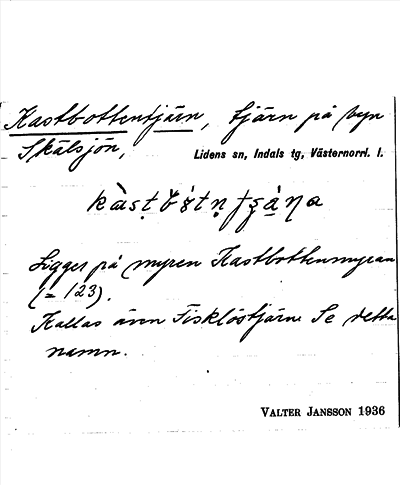 Kastbottentjärn, tjärn på byn
Skälsjön,
Lidens sn, Indals tg, Västernorrl. l.
Ligger på myren Kastbottenmyran
(= 123).
Kallas även Fisklöstjärn. Se detta
namn.
VALTER JANSSON 1936